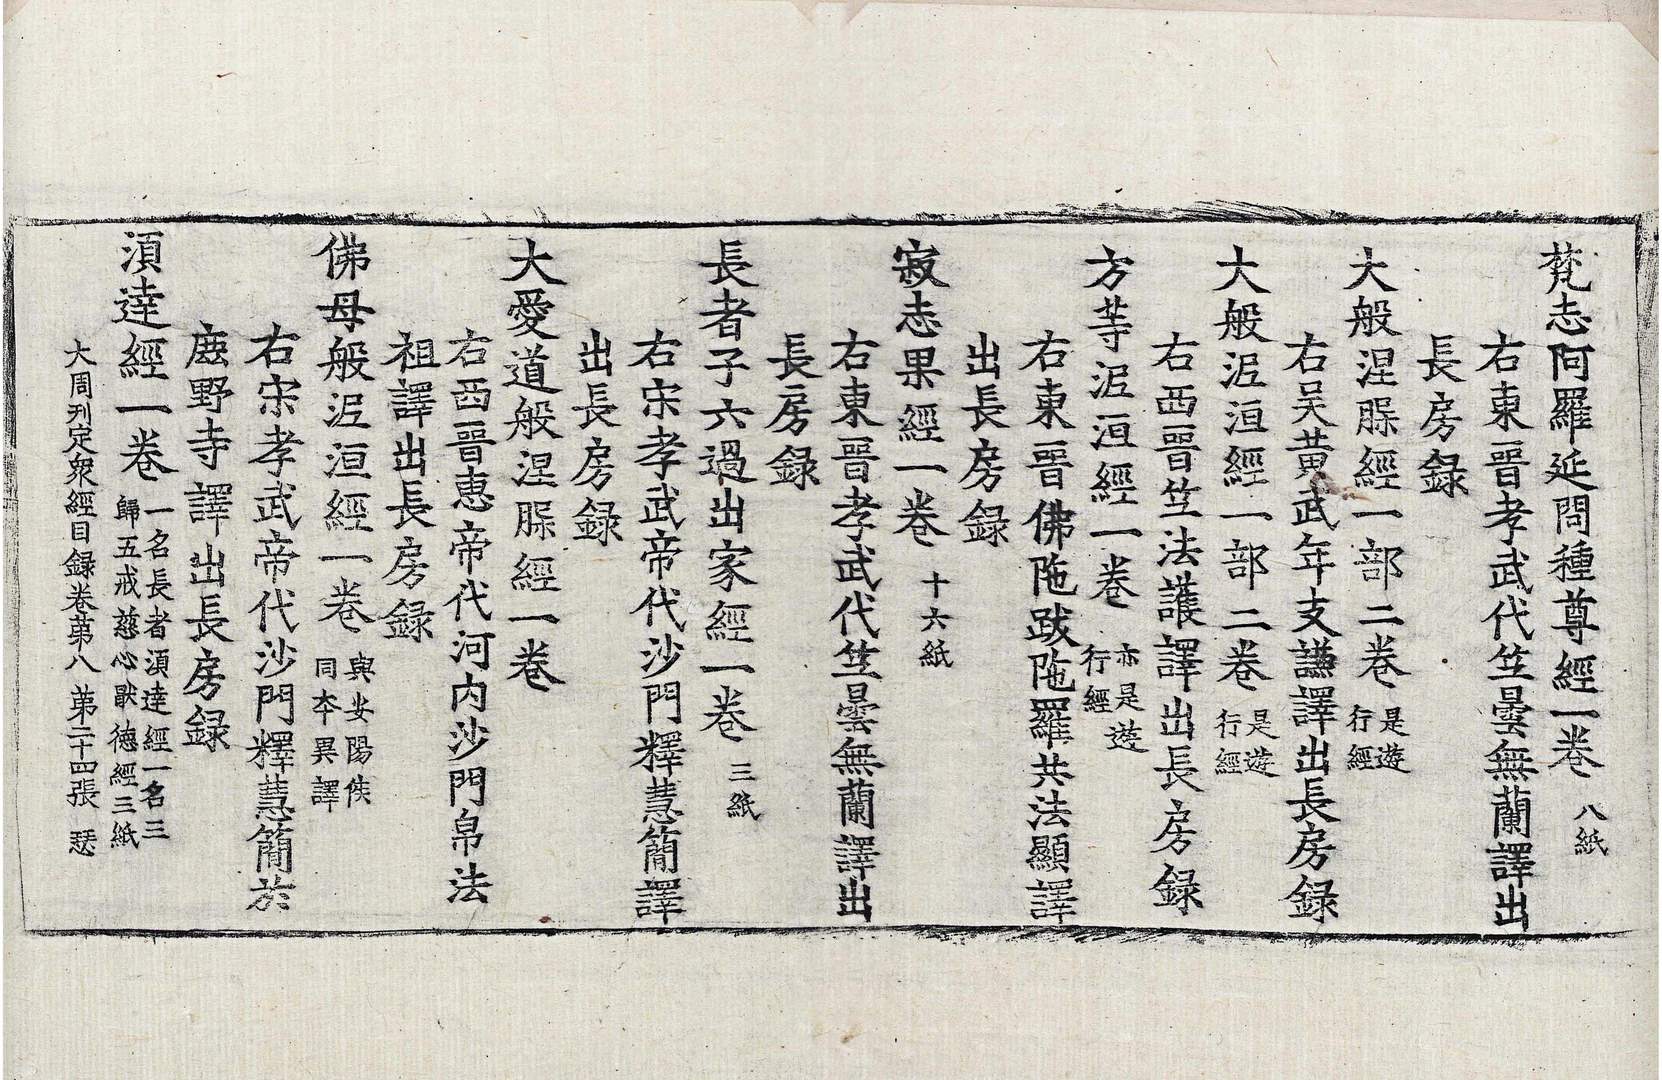 梵志阿羅延問種尊經一卷 八紙
右東晉孝武代竺曇無蘭譯出
長房録
大般涅槃經一部二卷 是遊行經
右吴黄武年支謙譯出長房録
大般泥洹經一部二卷 是遊行經
右西晉竺法護譯出長房録
方等泥洹經一卷 亦是遊行經
右東晉佛陁跋陁羅共法顯譯
出長房録
寂志果經一卷 十六紙
右東晉孝武代竺曇無蘭譯出
長房録
長者子六過出家經一卷 三紙
右宋孝武帝代沙門釋慧簡譯
出長房録
大愛道般涅槃經一卷
右西晉惠帝代河内沙門帛法
祖譯出長房録
佛母般泥洹經一卷 與安陽侯同本異譯
右宋孝武帝代沙門釋慧簡於
鹿野寺譯出長房録
湏達經一卷 一名長者湏達經一名三歸五戒慈心猒德經三紙
大周刋定衆經目録卷苐八 第二十四張 瑟